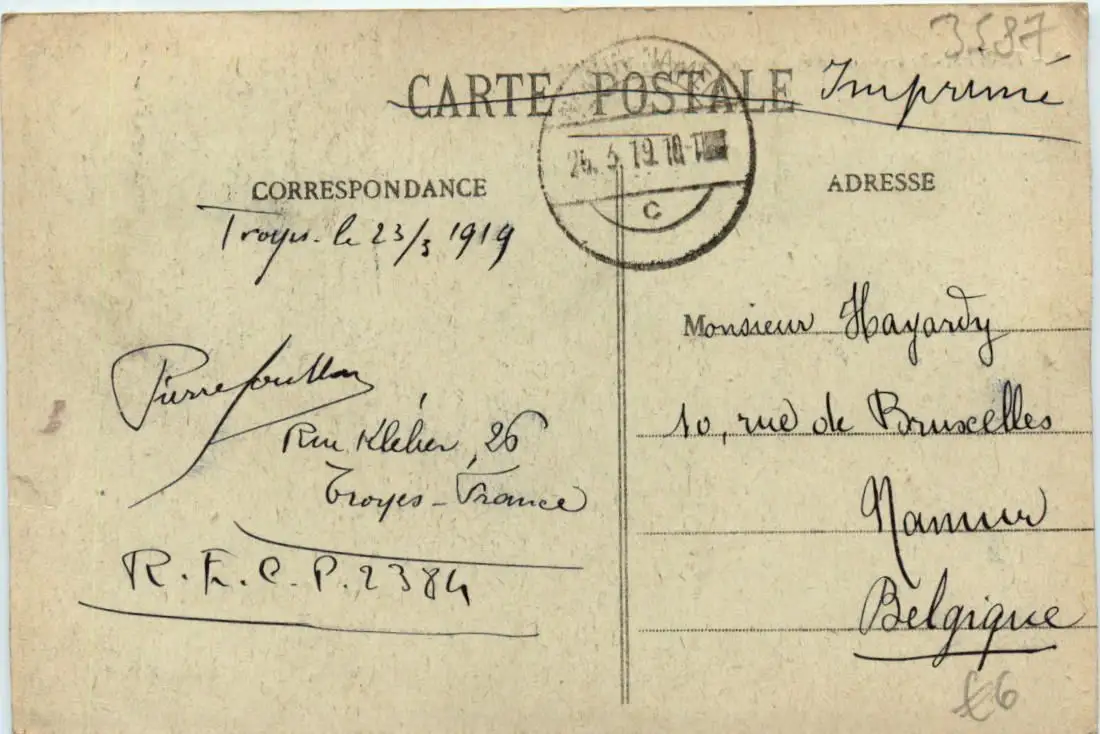 3587
CARTE POSTALE Imprimé
26.3.19.10-11
C
CORRESPONDANCE
Troyes. le 23/3 1919
Pierre
Rue Kléber, 26
Troyes - France
R. F. C. P. 2384
ADRESSE
Monsieur Hayardy
10, rue de Bruxelles
Namur
Belgique
£6